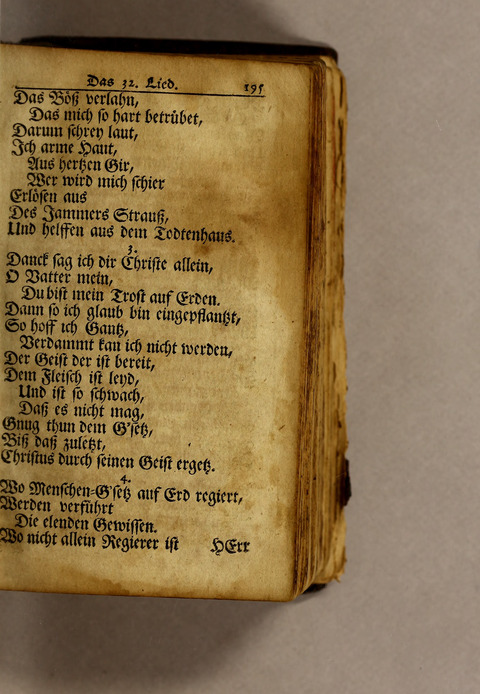 Das 32. Lied. 195
Das Böß verlahn,
Das mich so hart betrübet,
Darum schrey laut,
Ich arme Haut,
Aus hertzen Gir,
Wer wird mich schier
Erlösen aus
Des Jammers Strauß,
Und helffen aus dem Todtenhaus.
3.
Danck sag ich dir Christe allein,
O Vatter mein,
Du bist mein Trost auf Erden.
Dann so ich glaub bin eingepflantzt,
So hoff ich Gantz,
Verdammt kan ich nicht werden,
Der Geist der ist bereit,
Dem Fleisch ist leyd,
Und ist so schwach,
Daß es nicht mag,
Gnug thun dem G'setz,
Biß daß zuletzt,
Christus durch seinen Geist ergetz.
4.
Wo Menschen-G'setz auf Erd regiert,
Werden verführt
Die elenden Gewissen.
Wo nicht allein Regierer ist HErr